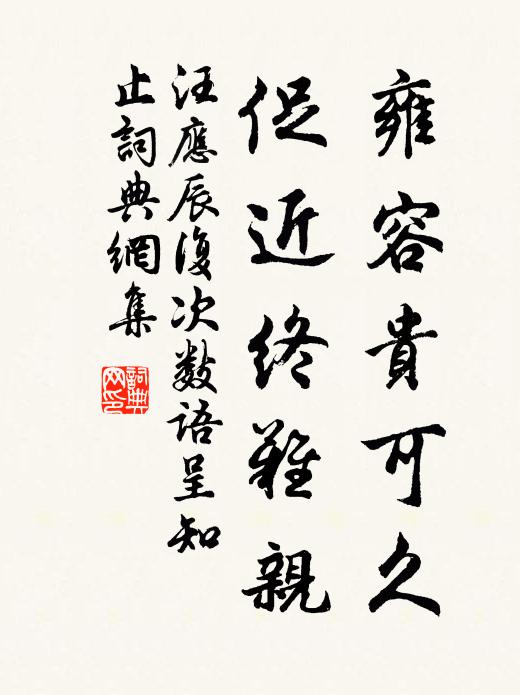 雍容貴可久
促近終難親
汪應辰復次数語呈知
止詞典網集
詞典网印